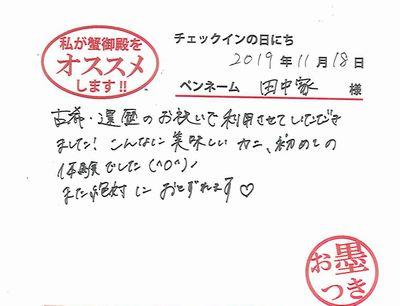 私が蟹御殿を
オススメ
します!!
チェックインの日にち
2019年11月18日
ペンネーム 田中家 様
古希・還暦のお祝いで利用させていただき
ました! こんなに美味しいカニ、初めての
体験でした(^0^)ノ
また絶対におとずれます♡
お墨つき